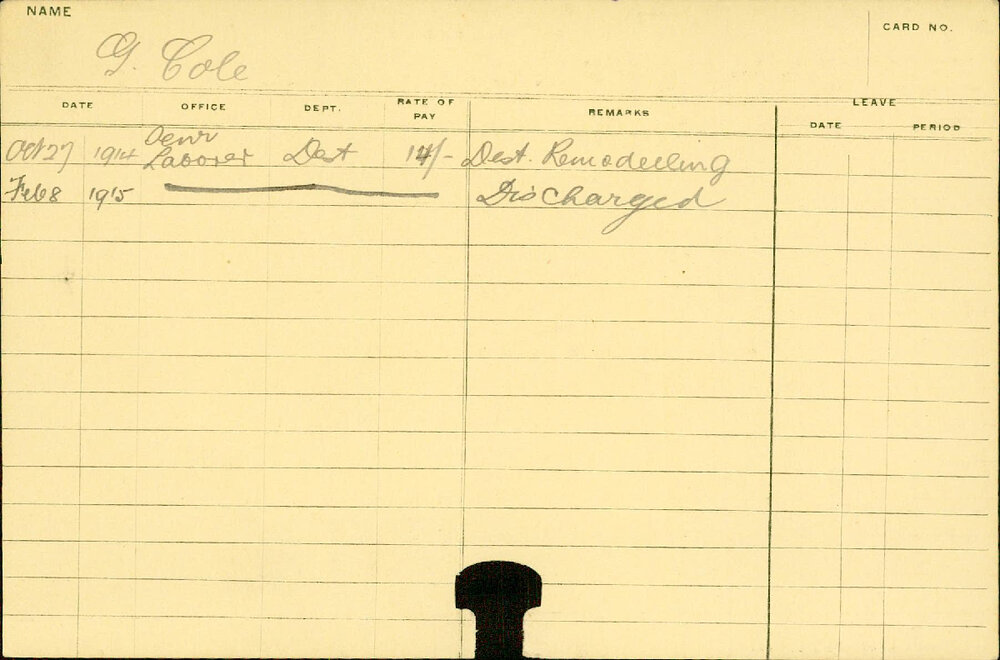 NAME
CARD NO.
G. Cole
DATE OFFICE DEPT. RATE OF PAY REMARKS LEAVE
DATE PERIOD
Oct 27 1914 Laborer Dest 14/- Dest. Remodelling
Feb 8 1915 Discharged